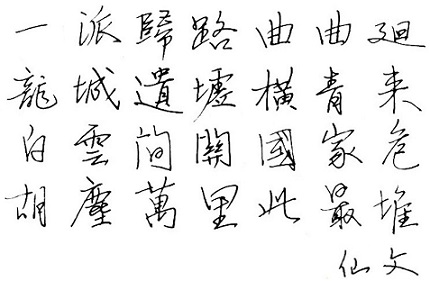 一派歸路曲曲廻
龍城遺墟橫青來
白雲間關國家危
胡塵萬里此最堆
仙文